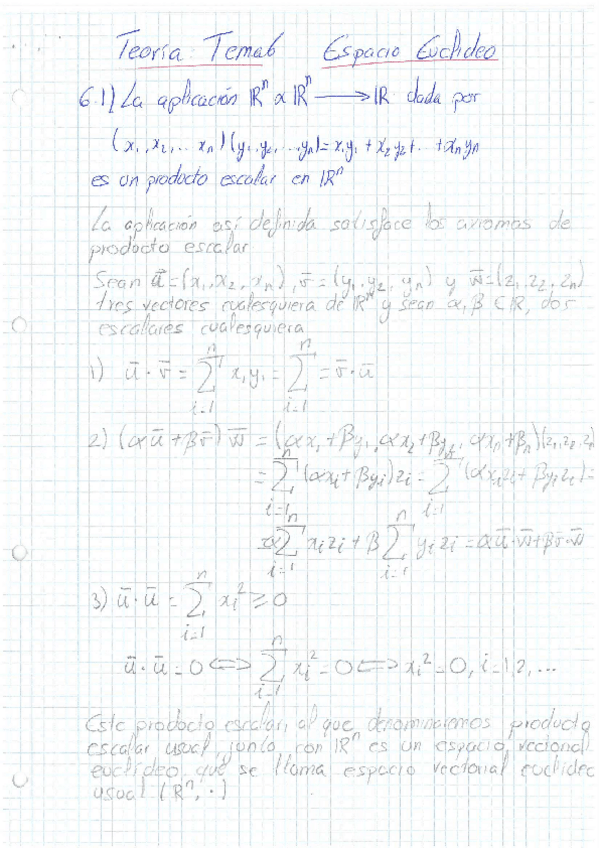 Teoría Tema6 Espacio Euclideo
6.1) La aplicación ℝⁿ x ℝⁿ ⟶ ℝ dada por
(x₁, x₂, ... xₙ)(y₁, y₂, ..., yₙ) = x₁y₁ + x₂y₂ + ... + xₙyₙ
es un producto escalar en ℝⁿ
La aplicación así definida satisface los axiomas de
producto escalar.
Sean ū = (x₁, x₂, xₙ), v̄ = (y₁, y₂, yₙ) y w̄ = (z₁, z₂, zₙ)
tres vectores cualesquiera de ℝⁿ y sean α, β ∈ ℝ, dos
escalares cualesquiera
1) ū · v̄ = ∑ⁿᵢ₌₁ xᵢyᵢ = ∑ⁿᵢ₌₁ = v̄ · ū
2) (αū + βv̄) w̄ = (αx₁ + βy₁, αx₂ + βy₂, αxₙ + βₙ)(z₁, z₂, zₙ)
= ∑ⁿᵢ₌₁ (αxᵢ + βyᵢ)zᵢ = ∑ⁿᵢ₌₁ (αxᵢzᵢ + βyᵢzᵢ) =
α∑ⁿᵢ₌₁ xᵢzᵢ + β∑ⁿᵢ₌₁ yᵢzᵢ = αū · w̄ + βv̄ · w̄
3) ū · ū = ∑ⁿᵢ₌₁ xᵢ² ≥ 0
ū · ū = 0 ⟺ ∑ⁿᵢ₌₁ xᵢ² = 0 ⟺ xᵢ² = 0, i = 1, 2, ...
Este producto escalar, al que denominaremos producto
escalar usual, junto con ℝⁿ es un espacio vectorial
euclídeo que se llama espacio vectorial euclideo
usual (ℝⁿ, ·)